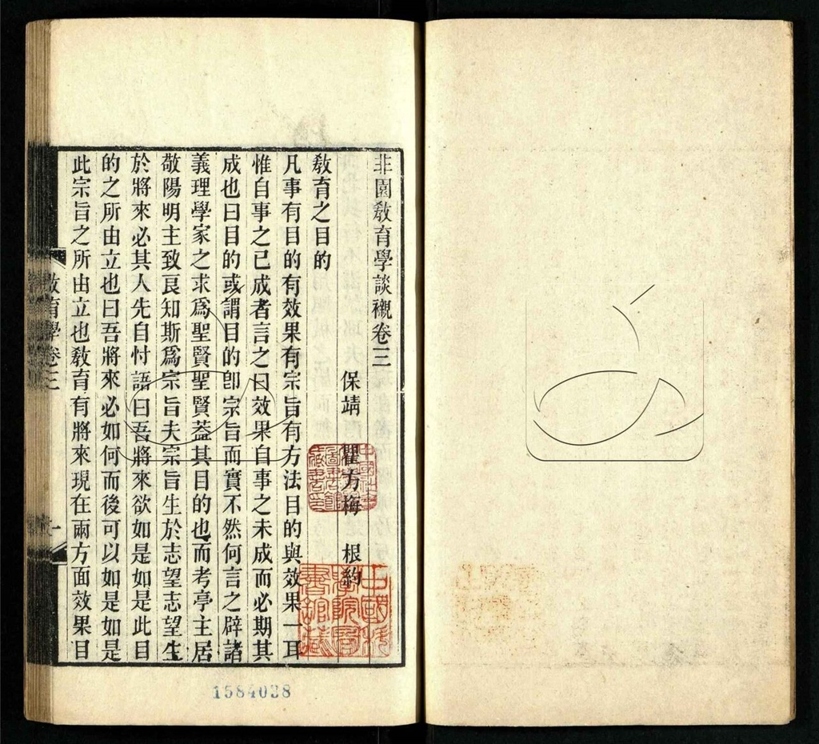 非園敎育學談櫬卷三
保靖 瞿方梅 根約
敎育之目的
凡事有目的有效果有宗旨有方法目的與效果一耳
惟自事之已成者言之曰效果自事之未成而必期其
成也曰目的或謂目的卽宗旨而實不然何言之辟諸
義理學家之求爲聖賢聖賢葢其目的也而考亭主居
敬陽明主致良知斯爲宗旨夫宗旨生於志望志望生
於將來必其人先自忖語曰吾將來欲如是如是此目
的之所由立也曰吾將來必如何而後可以如是如是
此宗旨之所由立也敎育有將來現在兩方面效果目
敎育學卷三
一
1584038